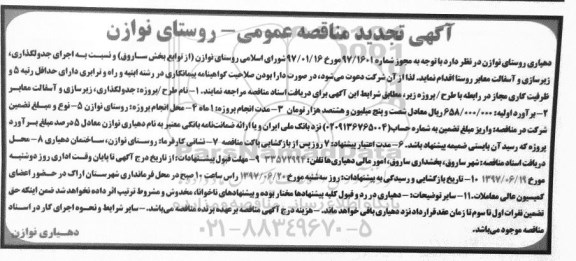 آگهی تجدید مناقصه عمومی - روستای نوازن
دهیاری روستای نوازن در نظر دارد با توجه به مجوز شماره 97/1601 مورخ 97/01/16 شورای اسلامی روستای نوازن (از توابع بخش ساروق) و نسبت به اجرای جدولگذاری،
زیرسازی و آسفالت معابر روستا اقدام نمایند. لذا از آن شرکت دعوت می‌شود، در صورت دارا بودن صلاحیت گواهینامه پیمانکاری در رشته ابنیه و راه و ترابری دارای حداقل رتبه 5 و
ظرفیت کاری مجاز در رابطه با طرح/ پروژه زیر، مطابق شرایط این آگهی برای دریافت اسناد مناقصه مراجعه نمایند. 1- نام طرح/ پروژه: جدولگذاری، زیرسازی و آسفالت معابر
2- برآورد اولیه: 658/000/000 ریال معادل شصت و پنج میلیون و هشتصد هزار تومان 3- مدت انجام پروژه: 1 ماه 4- محل انجام پروژه: روستای نوازن 5- نوع و مبلغ تضمین
شرکت در مناقصه: واریز مبلغ تضمین به شماره حساب نزد بانک ملی ایران و یا ارائه ضمانت‌نامه بانکی معتبر به نام دهیاری نوازن معادل 5 درصد مبلغ برآورد
پروژه که رسید آن بایستی ضمیمه پیشنهاد باشد. 6- مدت اعتبار پیشنهاد: 7 روز پس از بازگشایی پاکت مناقصه 7- نشانی کارفرما: روستای نوازن، ساختمان دهیاری 8- محل
دریافت اسناد مناقصه: شهر ساروق، بخشداری ساروق، امور مالی دهیاری‌ها تلفن: 33572923 9- مهلت قبول پیشنهادات: از تاریخ درج آگهی تا پایان وقت اداری روز دوشنبه
مورخ 1397/06/19 10- تاریخ بازگشایی و رسیدگی به پیشنهادات: روز سه‌شنبه مورخ 1397/06/20 راس ساعت 10 صبح در محل فرمانداری شهرستان اراک در حضور اعضای
کمیسیون عالی معاملات. 11- سایر توضیحات - دهیاری در رد و قبول کلیه پیشنهادها مختار بوده و پیشنهادهای ناخوانا، مخدوش و مشروط ترتیب اثر داده نخواهد شد ضمن اینکه حق
تضمین نفرات اول تا سوم تا زمان عقد قرارداد نزد دهیاری باقی خواهد ماند. - هزینه درج آگهی مناقصه بر عهده برنده مناقصه می‌باشد. - سایر شرایط و نحوه اجرای کار در اسناد
مناقصه موجود می‌باشد.
دهیاری نوازن
021-88349670-5